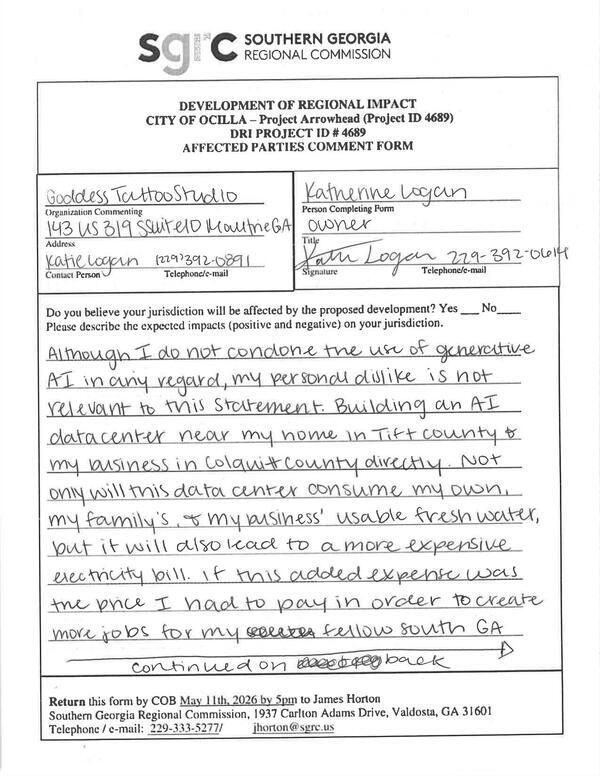 sgrc SOUTHERN GEORGIA
REGIONAL COMMISSION
DEVELOPMENT OF REGIONAL IMPACT
CITY OF OCILLA – Project Arrowhead (Project ID 4689)
DRI PROJECT ID # 4689
AFFECTED PARTIES COMMENT FORM
Goddess Tattoo Studio
Organization Commenting
143 US 319 S Suite 10 Moultrie GA
Address
Katie Logan (229) 392-0891
Contact Person Telephone/e-mail
Katherine Logan
Person Completing Form
owner
Title
Logan 229-392-0614
Signature Telephone/e-mail
Do you believe your jurisdiction will be affected by the proposed development? Yes ___ No ___
Please describe the expected impacts (positive and negative) on your jurisdiction.
Although I do not condone the use of generative
AI in any regard, my personal dislike is not
relevant to this statement. Building an AI
data center near my home in Tift county &
my business in Colquitt county directly. Not
only will this data center consume my own,
my family's, & my business' usable fresh water,
but it will also lead to a more expensive
electricity bill. If this added expense was
the price I had to pay in order to create
more jobs for my fellow south GA
continued on back
Return this form by COB May 11th, 2026 by 5pm to James Horton
Southern Georgia Regional Commission, 1937 Carlton Adams Drive, Valdosta, GA 31601
Telephone / e-mail: 229-333-5277/ jhorton@sgrc.us